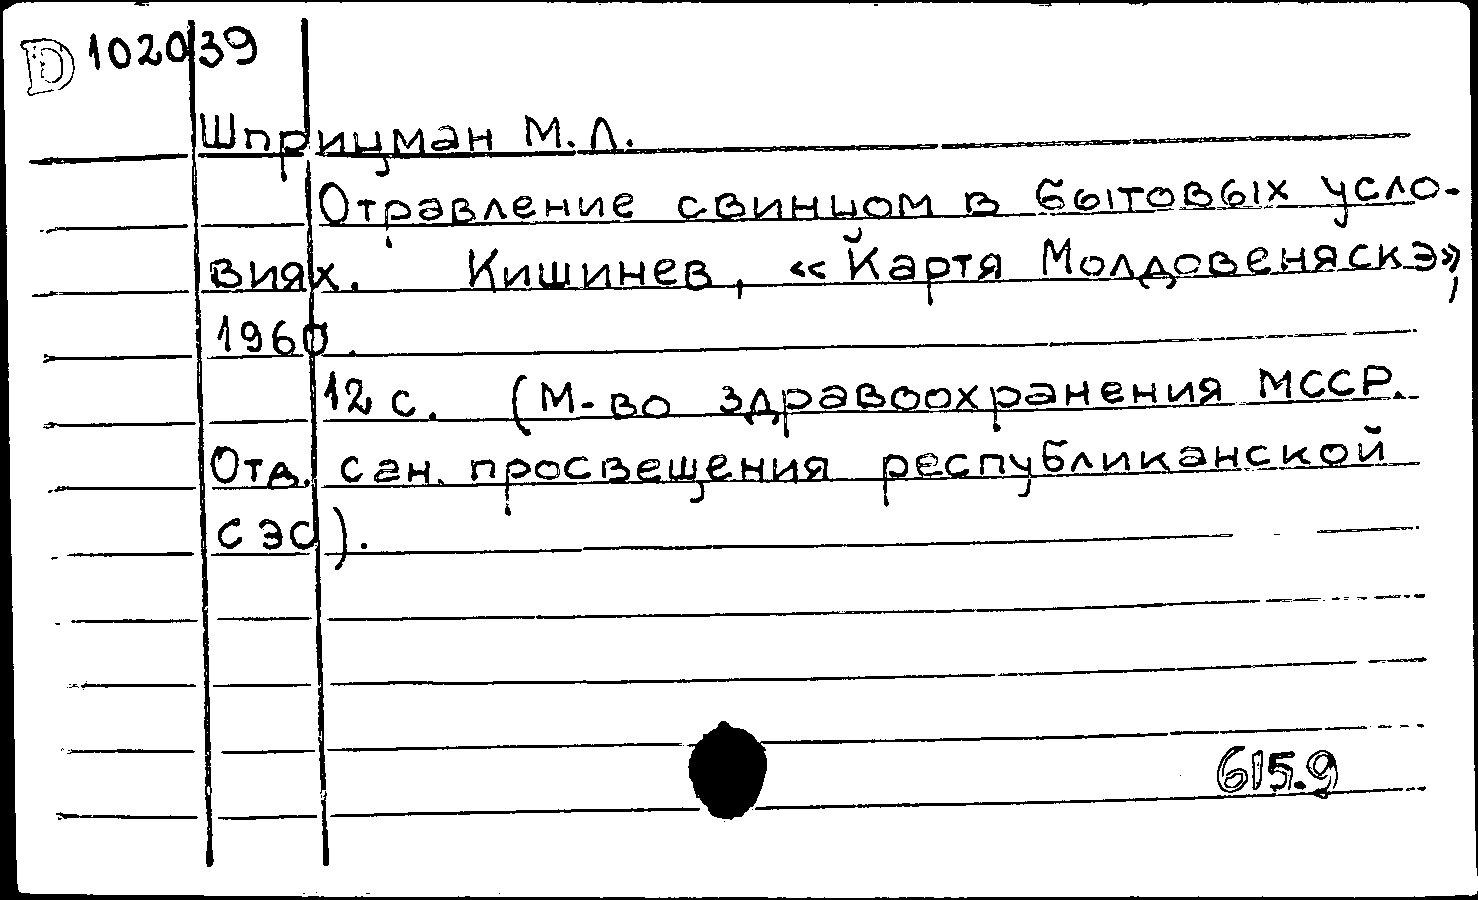 D 102039
Шприцман М.Л.
Отравление свинцом в бытовых усло-
виях. Кишинев, «Картя Молдовеняскэ»,
1960.
12 с. (М-во здравоохранения МССР.
Отд. сан. просвещения республиканской
СЭС).
615.9